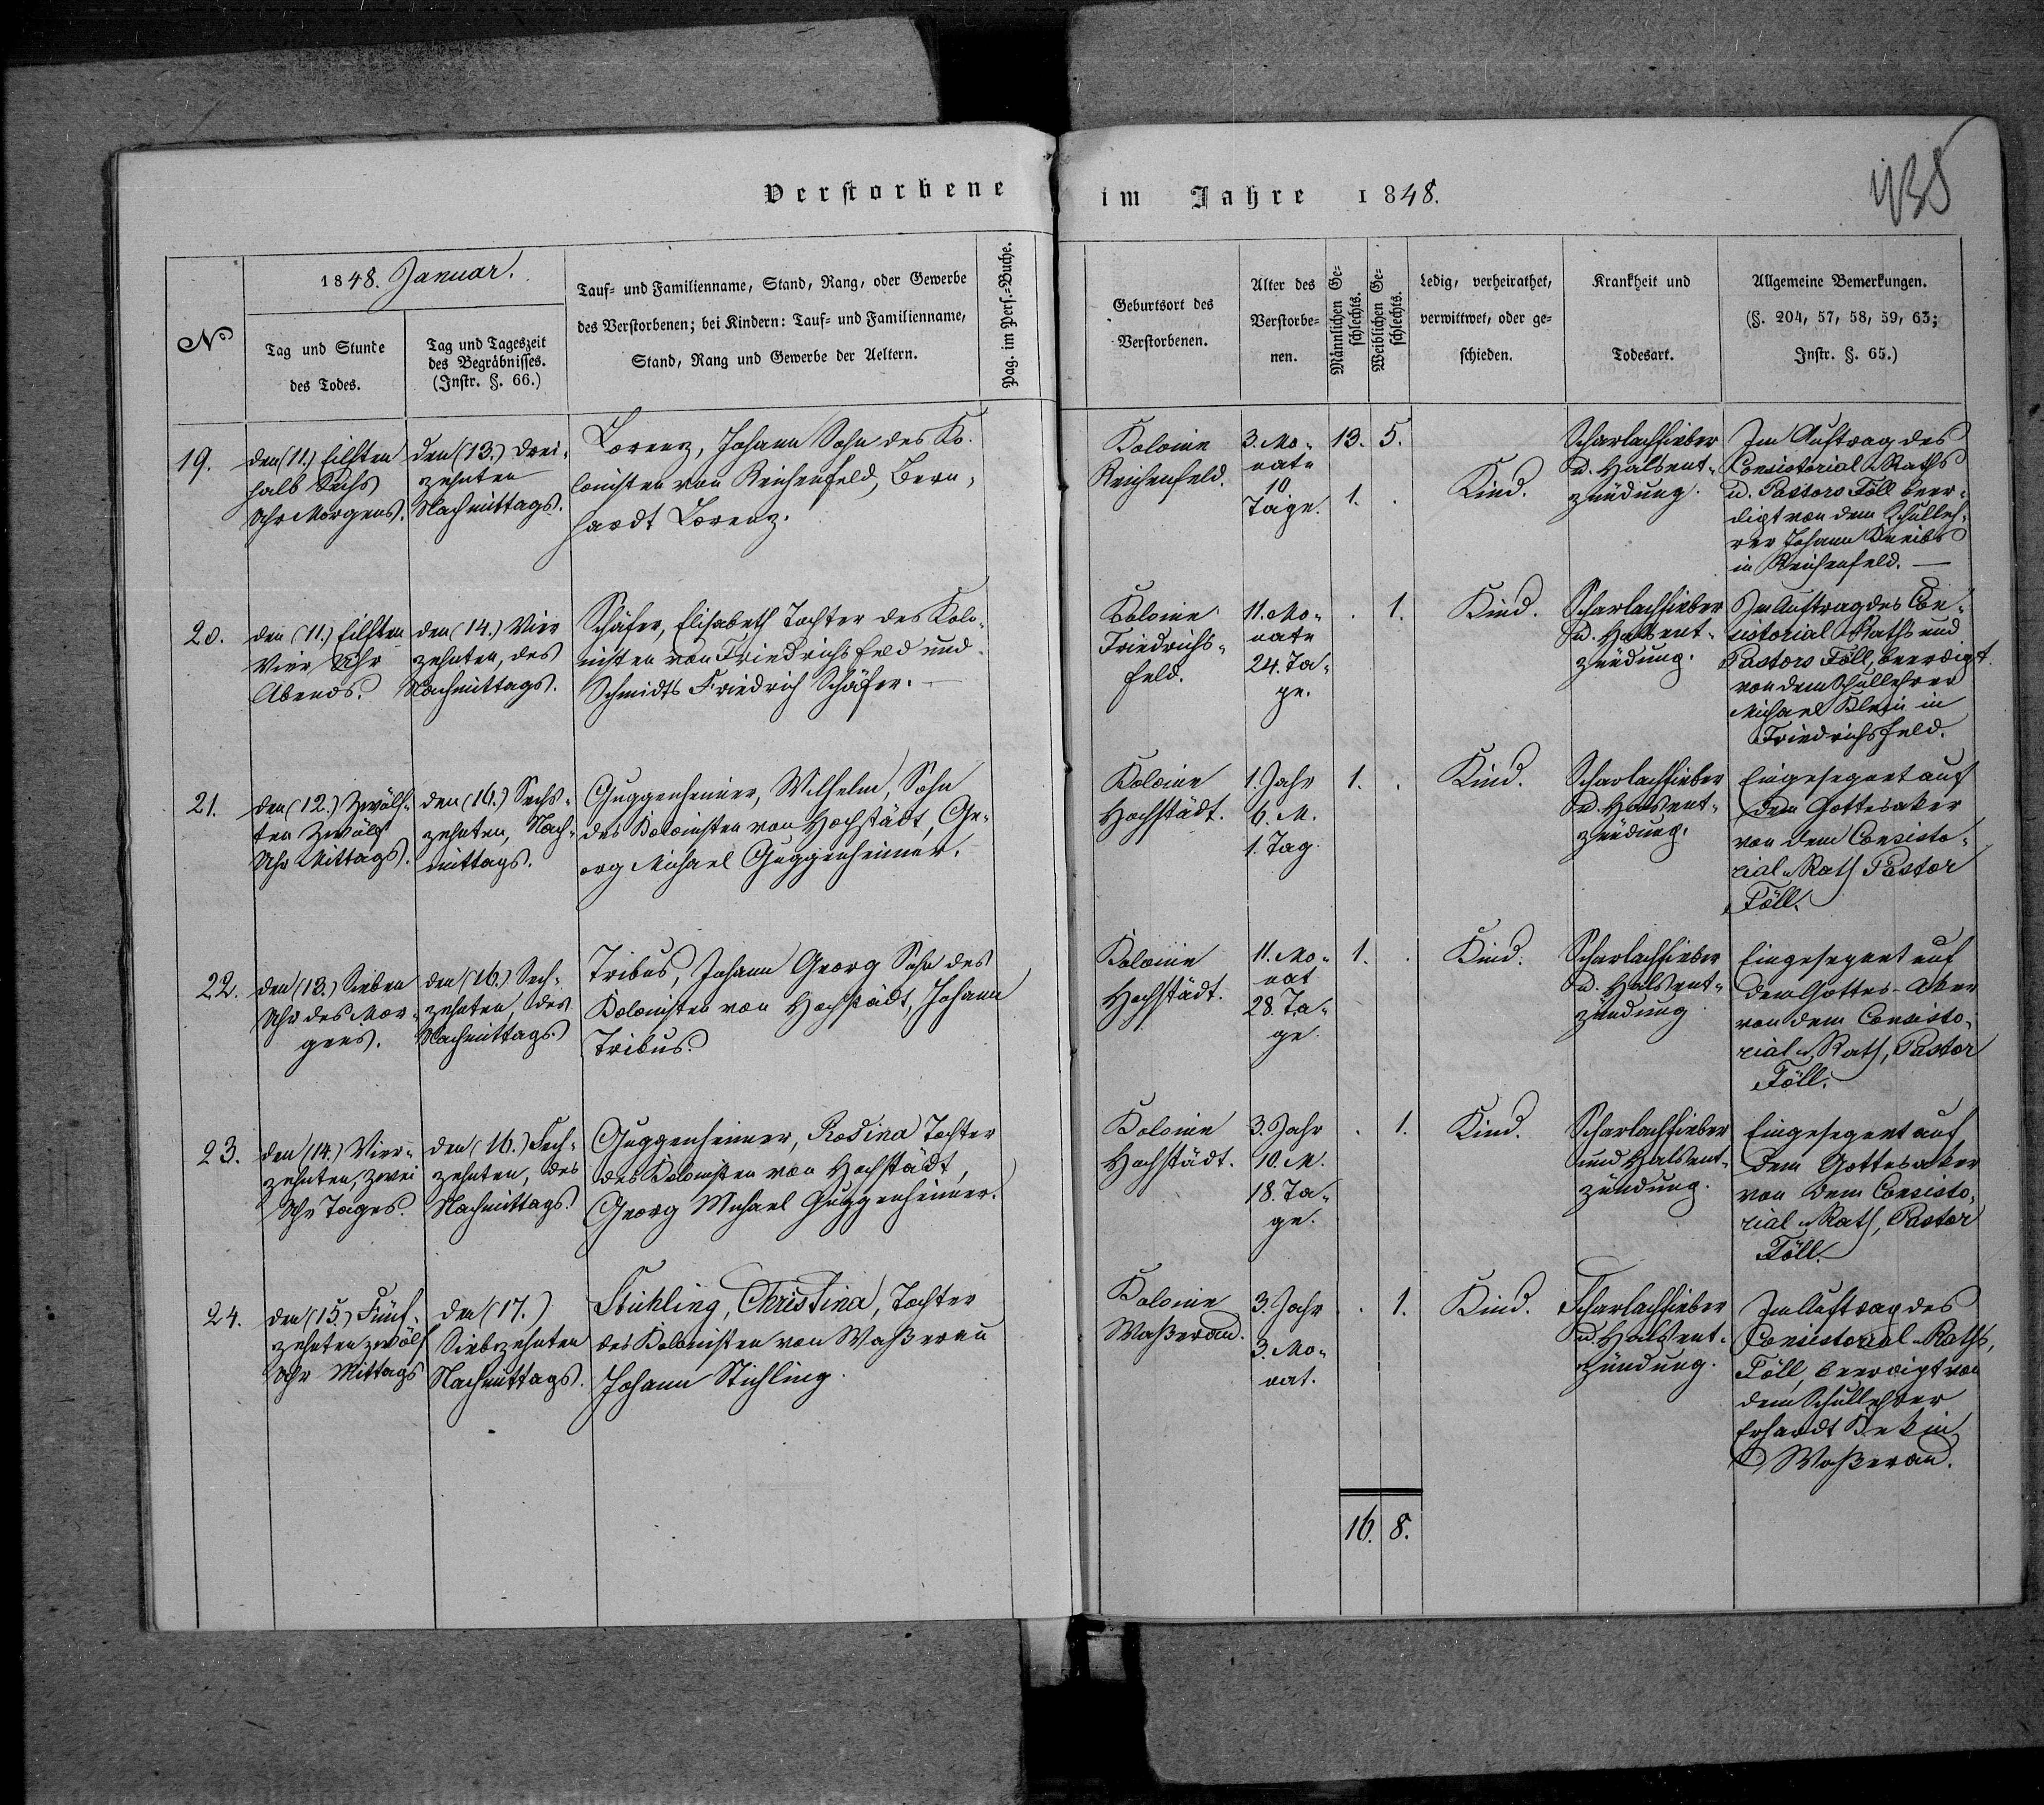 Verstorbene im Jahre 1848.
138
No
1848. Januar.
Tag und Stunde
des Todes.
Tag und Tageszeit
des Begräbnisses.
(Instr. §. 66.)
Tauf- und Familienname, Stand, Rang, oder Gewerbe
des Verstorbenen; bei Kindern: Tauf- und Familienname,
Stand, Rang und Gewerbe der Aeltern.
Pag. im Pers.-Buche.
Geburtsort des
Verstorbenen.
Alter des
Verstorbe-
nen.
Männlichen Ge-
schlechts.
Weiblichen Ge-
schlechts.
Ledig, verheirathet,
verwittwet, oder ge-
schieden.
Krankheit und
Todesart.
Allgemeine Bemerkungen.
(§. 204, 57, 58, 59, 63;
Instr. §. 65.)
19.
den (11.) Eilften
halb Sechs
Uhr Morgens.
den (13.) Drei-
zehnten
Nachmittags.
Lorenz, Johann Sohn des Ko-
lonisten von Reichenfeld, Bern-
hardt Lorenz.
Kolonie
Reichenfeld.
3. Mo-
nate
10
Tage.
13. 5.
1. .
Kind.
Scharlachfieber
u. Halsent-
zündung.
Im Auftrag des
Consistorial-Raths
u. Pastors Föll beer-
digt von dem Schulleh-
rer Johann
in Reichenfeld. —
20.
den (11.) Eilften
Vier Uhr
Abends.
den (14.) Vier
zehnten, des
Nachmittags.
Schäfer, Elisabeth Tochter des Kolo-
nisten von Friedrichsfeld und
Schmidts Friedrich Schäfer. —
Kolonie
Friedrichs-
feld.
11. Mo-
nate
24. Ta-
ge.
. 1.
Kind.
Scharlachfieber
u. Halsent-
zündung.
Im Auftrag des Con-
sistorial-Raths und
Pastors Föll, beerdigt
von dem Schullehrer
Michael Klein in
Friedrichsfeld.
21.
den (12.) Zwölf-
ten Zwölf
Uhr Mittags.
den (16.) Sechs-
zehnten, Nach-
mittags.
Guggenheimer, Wilhelm, Sohn
des Kolonisten von Hochstädt, Ge-
org Michael Guggenheimer.
Kolonie
Hochstädt.
1. Jahr
6. M.
1. Tag.
1. .
Kind.
Scharlachfieber
u. Halsent-
zündung.
Eingesegnet auf
dem Gottesaker
von dem Consisto-
rial-Rath Pastor
Föll.
22.
den (13.) Sieben
Uhr des Mor-
gens.
den (16.) Sech-
zehnten, des
Nachmittags.
Tribus, Johann Georg Sohn des
Kolonisten von Hochstädt, Johann
Tribus.
Kolonie
Hochstädt.
11. Mo-
nat
28. Ta-
ge.
1. .
Kind.
Scharlachfieber
u. Halsent-
zündung
Eingesegnet auf
dem Gottes-Aker
von dem Consisto-
rial-Rath, Pastor
Föll.
23.
den (14.) Vier-
zehnten, zwei
Uhr Tages.
den (16.) Sech-
zehnten, des
Nachmittags.
Guggenheimer, Rosina Tochter
des Kolonisten von Hochstädt,
Georg Michael Guggenheimer.
Kolonie
Hochstädt.
3. Jahr
10. M.
18. Ta-
ge.
. 1.
Kind.
Scharlachfieber
und Halsent-
zündung.
Eingesegnet auf
dem Gottesaker
von dem Consisto-
rial-Rath, Pastor
Föll.
24.
den (15.) Fünf-
zehnten zwölf
Uhr Mittags
den (17.)
Siebzehnten
Nachmittags.
Stichling, Christina, Tochter
des Kolonisten von Waßerau
Johann Stichling.
Kolonie
Waßerau.
3. Jahr
3. Mo-
nat.
. 1.
Kind.
Scharlachfieber
u. Halsent-
zündung.
Im Auftrag des
Consistorial-Raths,
Föll, beerdigt von
dem Schullehrer
Erhardt
Waßerau.
16. 8.